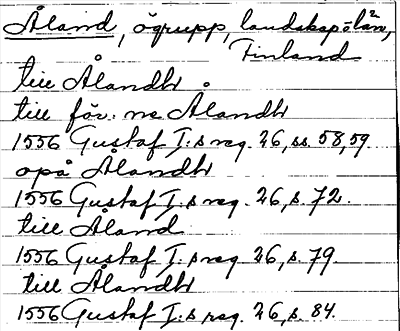 Åland, ögrupp, landskap o. län,
Finland
till Ålandh
till för:ne Ålandh
1556 Gustaf I:s reg. 26, ss. 58, 59.
opå Ålandh
1556 Gustaf I:s reg. 26, s. 72.
till Åland
1556 Gustaf I:s reg. 26, s. 79.
till Ålandh
1556 Gustaf I:s reg. 26, s. 84.